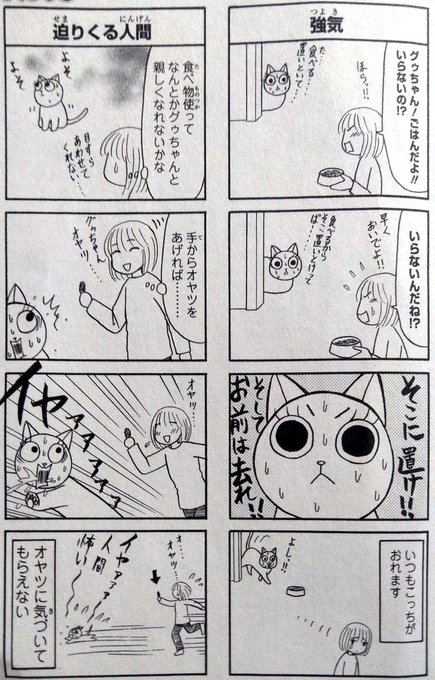 強気
つよき
グゥちゃん!ごはんだよ!!
いらないの!?
ほらっ!!
食べる…
置いといて…
いらないんだね!?
早く
おいでよ!!
食べるから
そこ置いとけって
ば……
そこに置け!!
そして
お前は去れ!!
いつもこっちが
おれます
よし!!
迫りくる人間
せま
にんげん
食べ物使って
た
ものつか
なんとかグゥちゃんと
親しくなれないかな
した
よそ
よそ
目すら
あわせて
くれない……
手からオヤツを
て
あげれば……
グゥちゃん
オヤツ…
イヤァァァァァ
オヤツ…
オヤツに気づいて
き
もらえない
オ……
オヤツ…
イヤァァァ
人間
怖い〜